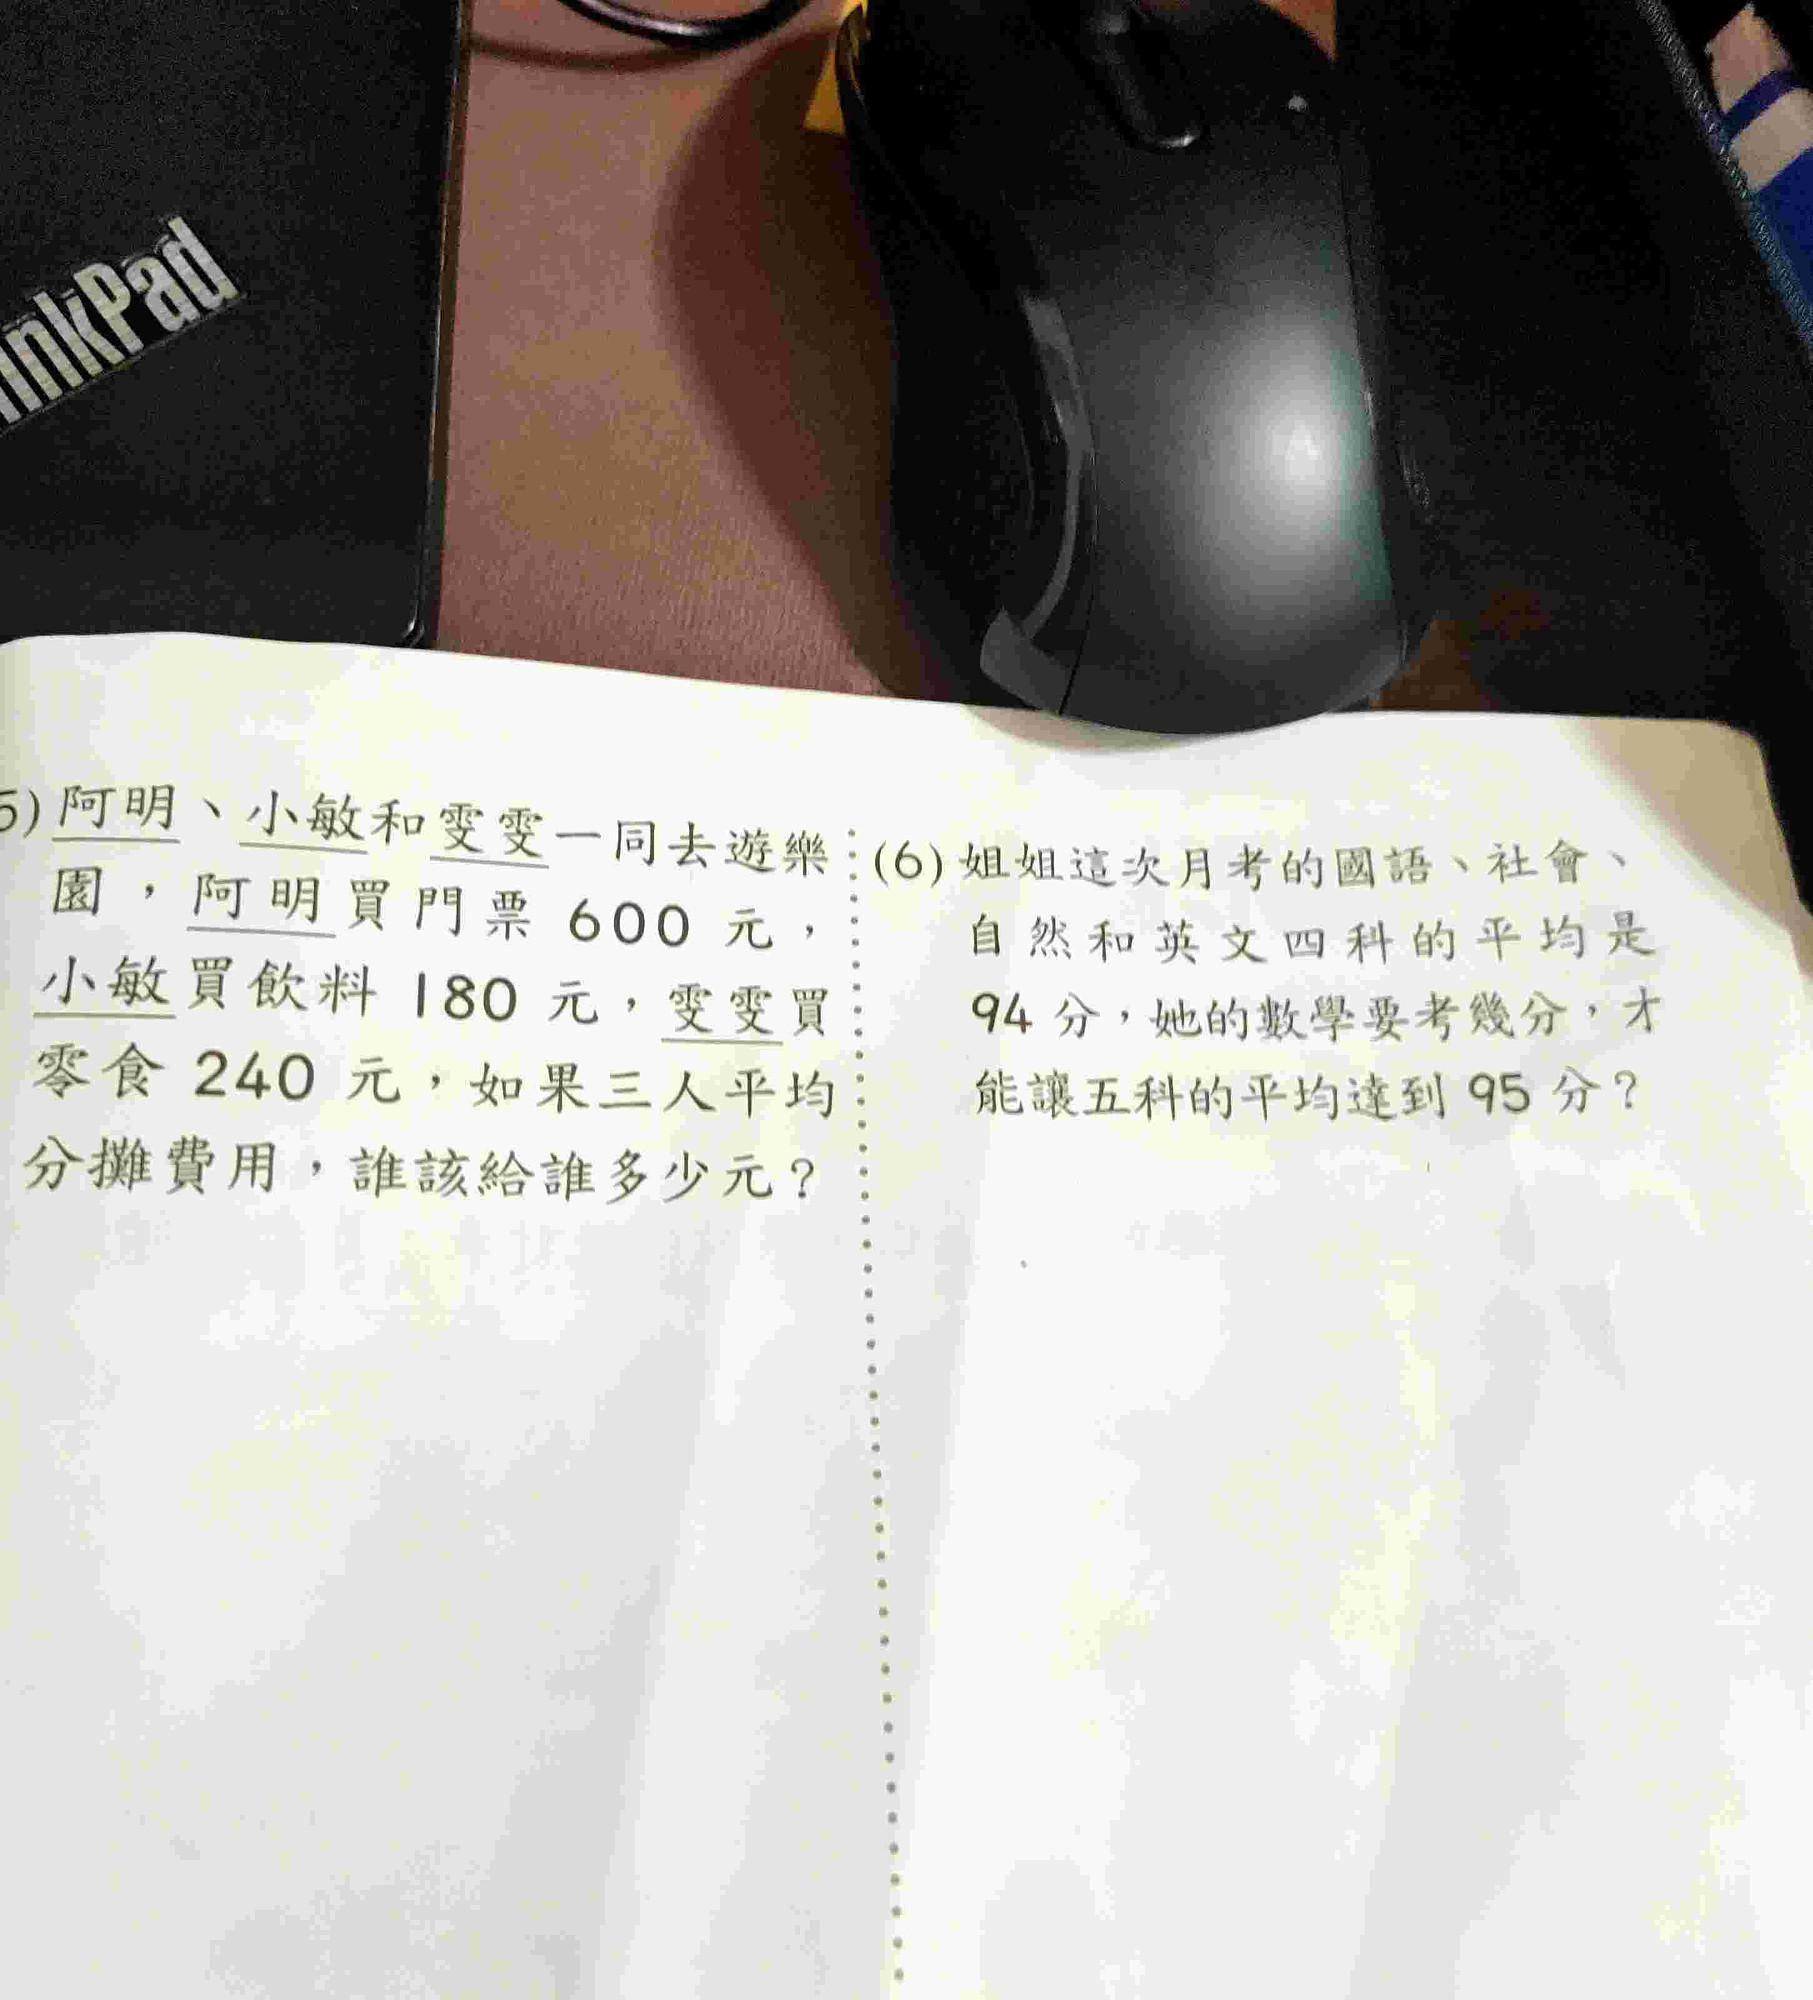 inkPad
5) 阿明、小敏和雯雯一同去遊樂
園，阿明買門票 600 元，
小敏買飲料 180 元，雯雯買
零食 240 元，如果三人平均
分攤費用，誰該給誰多少元？
(6) 姐姐這次月考的國語、社會、
自然和英文四科的平均是
94 分，她的數學要考幾分，才
能讓五科的平均達到 95 分？